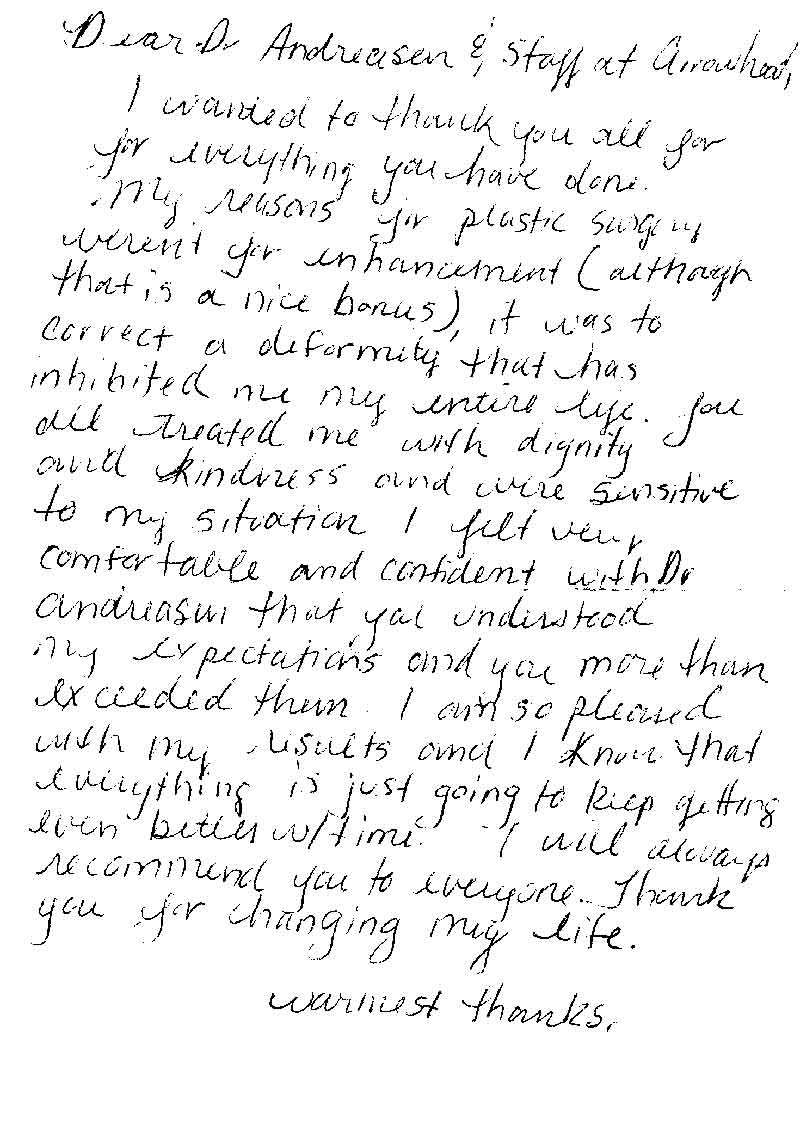 Dear Dr Andreasen & Staff at Arrowhead,
I wanted to thank you all for
for everything you have done.
My reasons for plastic surgery
weren't for enhancement (although
that is a nice bonus), it was to
correct a deformity that has
inhibited me my entire life. You
all treated me with dignity
and kindness and were sensitive
to my situation I felt very
comfortable and confident with Dr
Andreasen that you understood
my expectations and you more than
exceeded them. I am so pleased
with my results and I know that
everything is just going to keep getting
even better w/time. I will always
recommend you to everyone. Thank
you for changing my life.
warmest thanks,